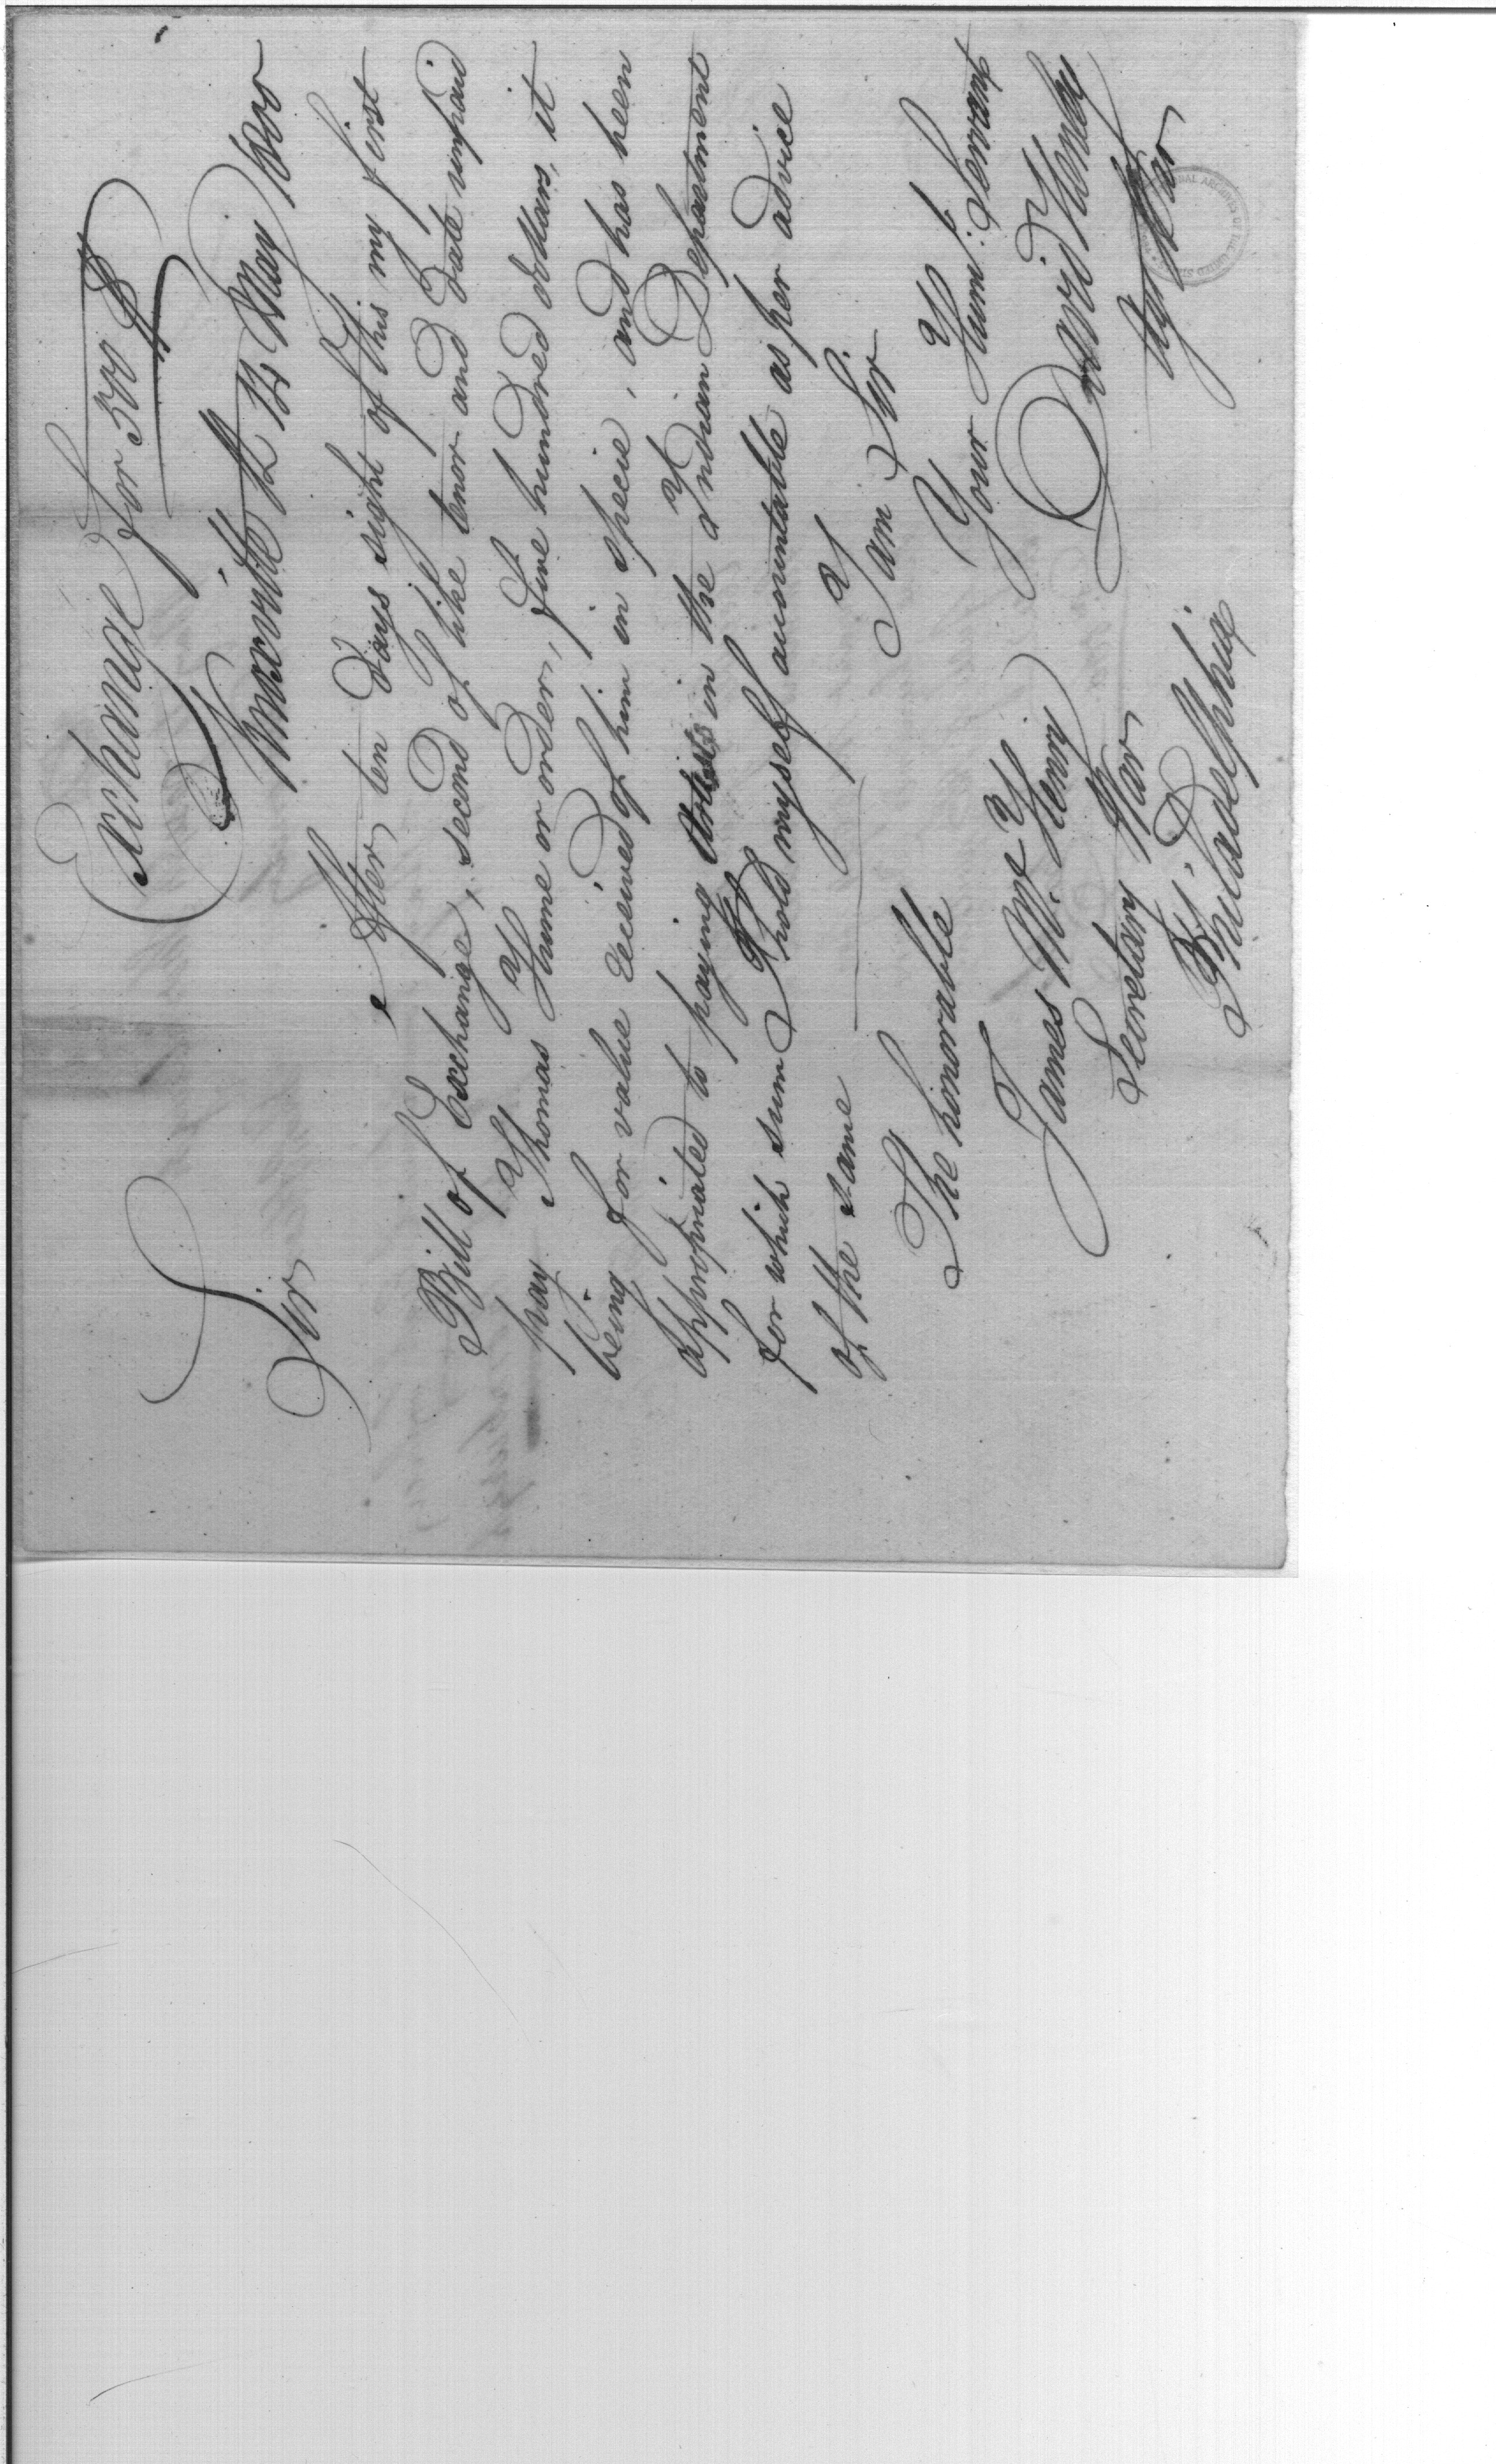 Exchange for 500 $
Knoxville 12 May 1800
Sir
After ten days sight of this my first
Bill of Exchange, second of like tenor and date unpaid
pay Thomas Hume or order, five hundred dollars, it
being for value received of him in specie, and has been
appropriated to paying in the Indian Department
for which sum I hold myself accountable as per advice
of the same
I am Sir
The honorable
Your Hum. Servant
James Mc. Henry
David Henley
Secretary War
Agt War
Philadelphia